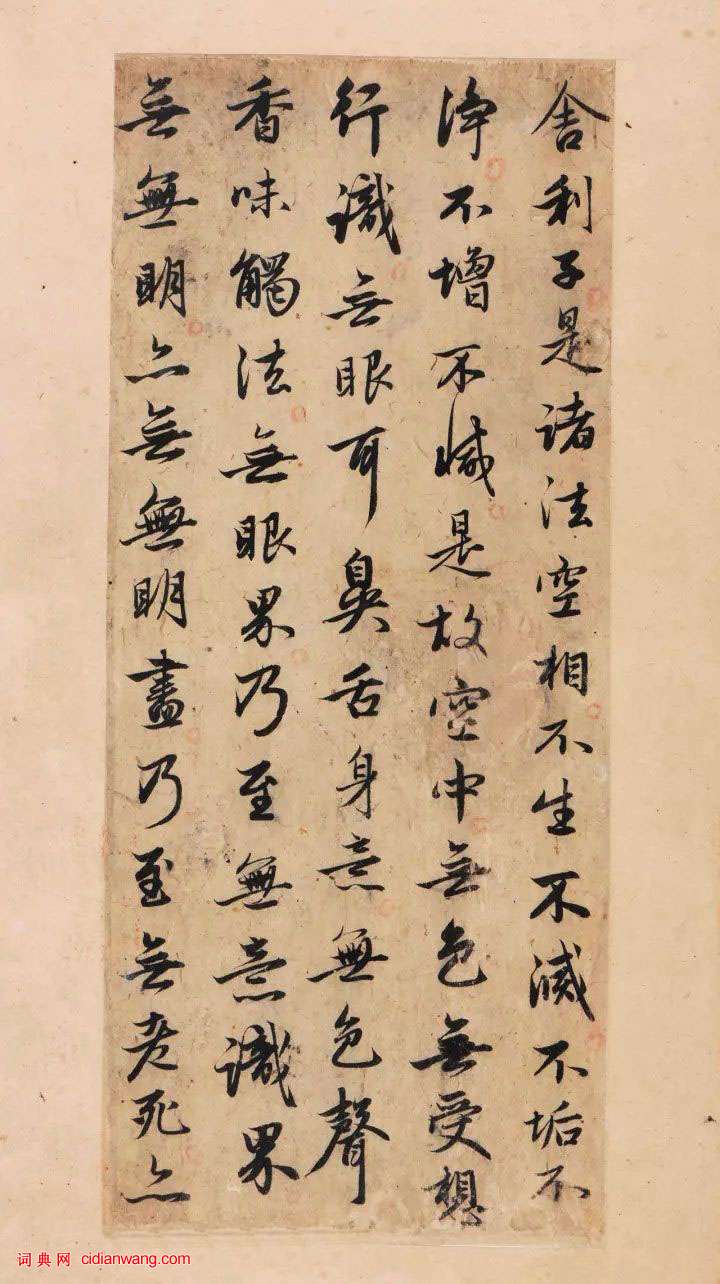 舍利子是诸法空相不生不滅不垢不
淨不增不減是故空中無色無受想
行識無眼耳鼻舌身意無色聲
香味觸法無眼界乃至無意識界
無無明亦無無明盡乃至無老死亦
词典网 cidianwang.com